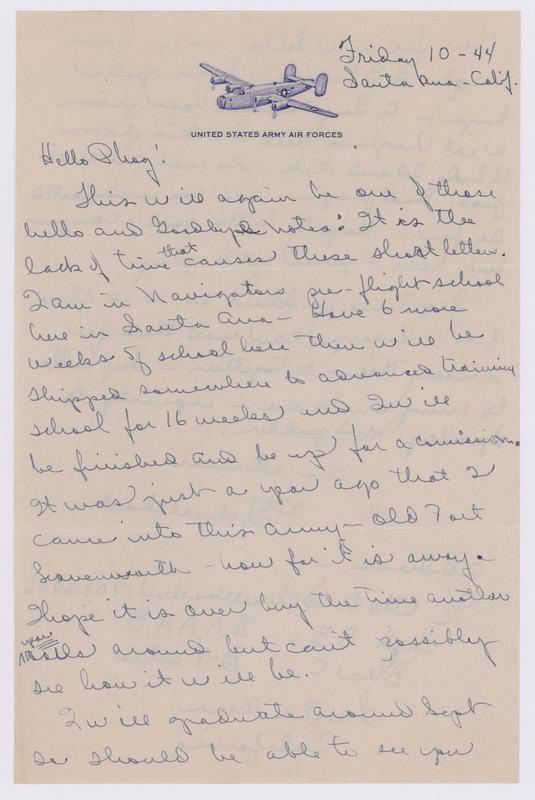 Friday 10-44
Santa Ana-Calif.
UNITED STATES ARMY AIR FORCES
Hello Phog!
This will again be one of those
hello and Goodbye notes: It is the
lack of time that causes these short letters.
I am in Navigators pre-flight school
here in Santa Ana- Have 6 more
weeks of school here then will be
shipped somewhere to advanced training
school for 16 weeks and I will
be finished and be up for a comission.
It was just a year ago that I
came into this army- Old Fort
Levenworth - how far it is away.
I hope it is over buy the time another
year rolls around but can't possibly
see how it will be.
I will graduate around Sept
so should be able to see you